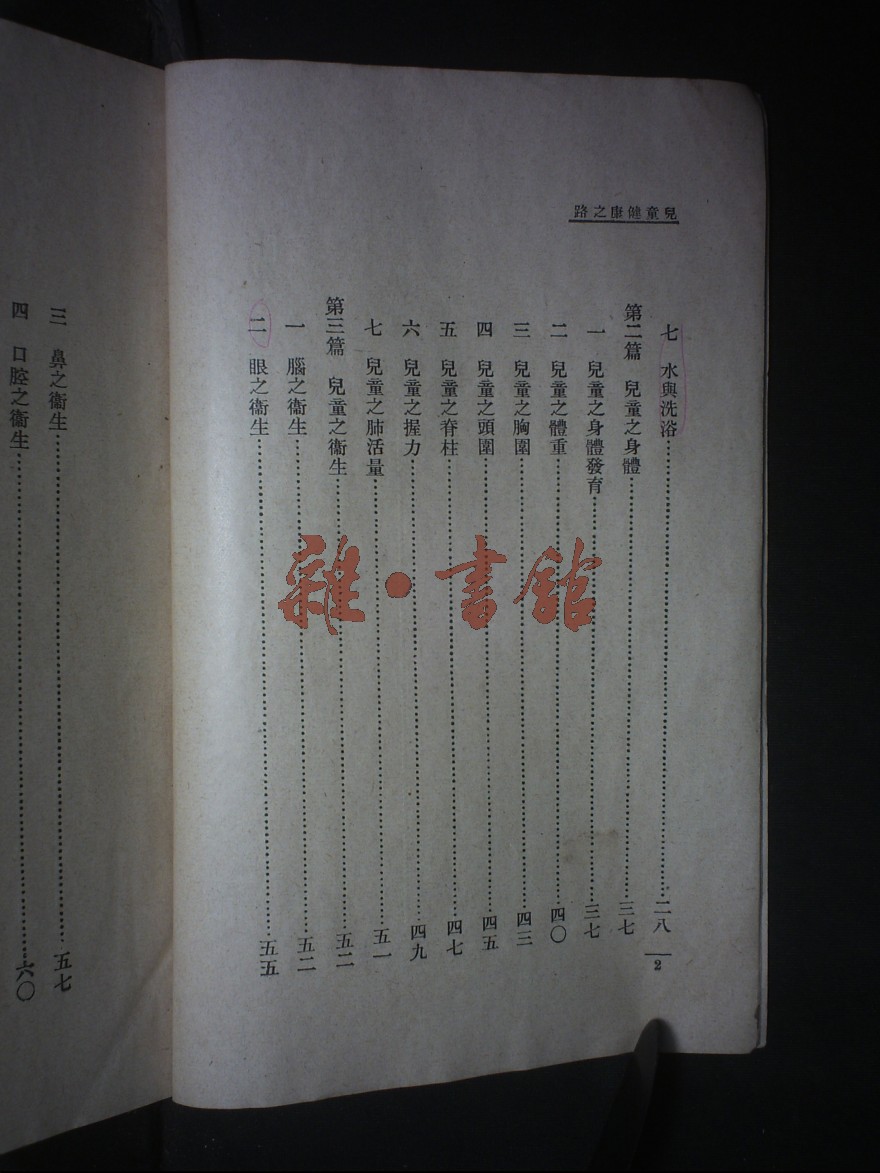 兒童健康之路
七 水與洗浴……二八
第二篇 兒童之身體……三七
一 兒童之身體發育……三七
二 兒童之體重……四〇
三 兒童之胸圍……四三
四 兒童之頭圍……四五
五 兒童之脊柱……四七
六 兒童之握力……四九
七 兒童之肺活量……五一
第三篇 兒童之衞生……五二
一 腦之衞生……五二
二 眼之衞生……五五
2
三 鼻之衞生……五七
四 口腔之衞生……六〇
雜·書館